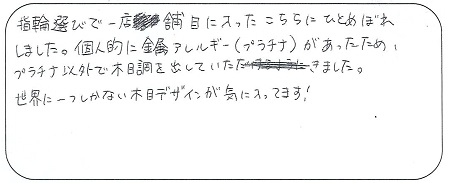 指輪選びで一店舗目に入ったこちらにひとめぼれ
しました。個人的に金属アレルギー(プラチナ)があったため、
プラチナ以外で木目調を出していただきました。
世界に一つしかない木目デザインが気に入ってます!